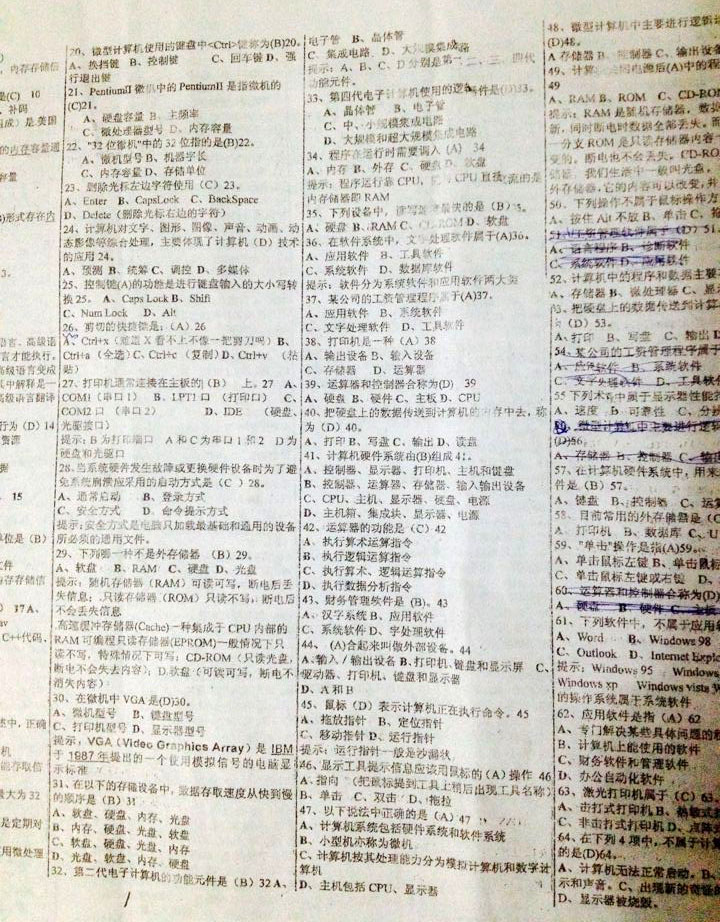 内存存储信
是(C) 10
、补码
是美国
的内存容量通
容量
B)形式存在内
3、
语言、高级语
言才能执行,
高级语言变成
其中解释是一
高级语言翻译
行为(D)14
资源
15
单位是(B)
件
内存存储信
) 17A、
av
C++代码,
中,正确
机
能存取信
最大为32
是定期对
用微处理
20、微型计算机使用的键盘中<Ctrl>键称为(B)20。
A、换挡键 B、控制键 C、回车键 D、强
行退出键
21、PentiumII 微机中的 PentiumII 是指微机的
(C)21。
A、硬盘容量 B、主频率
C、微处理器型号 D、内存容量
22、"32 位微机"中的 32 位指的是(B)22。
A、微机型号 B、机器字长
C、内存容量 D、存储单位
23、删除光标左边字符使用(C)23。
A、Enter B、CapsLock C、BackSpace
D、Delete(删除光标右边的字符)
24、计算机对文字、图形、图像、声音、动画、动
态影像等综合处理,主要体现了计算机(D)技术
的应用 24。
A、预测 B、统筹 C、调控 D、多媒体
25、控制键(A)的功能是进行键盘输入的大小写转
换 25。 A、Caps Lock B、Shift
C、Num Lock D、Alt
26、剪切的快捷键是:(A)26
A、Ctrl+x(难道 X 看不上不像一把剪刀吗)B、
Ctrl+a(全选)C、Ctrl+c(复制)D、Ctrl+v (粘
贴)
27、打印机通常连接在主板的(B)上。27 A、
COM1(串口 1) B、LPT1 口(打印口) C、
COM2 口(串口 2) D、IDE (硬盘、
光驱接口)
提示:B 为打印端口 A 和 C 为串口 1 和 2 D 为
硬盘和光驱口
28、当系统硬件发生故障或更换硬件设备时为了避
免系统崩溃应采用的启动方式是(C)28。
A、通常启动 B、登录方式
C、安全方式 D、命令提示方式
提示:安全方式是电脑只加载最基础和通用的设备
所必须的通用文件。
29、下列哪一种不是外存储器 (B)29。
A、软盘 B、RAM C、硬盘 D、光盘
提示:随机存储器(RAM)可读可写,断电后丢
失信息;只读存储器(ROM)只读不写;断电后
不会丢失信息
高速缓冲存储器(Cache)一种集成于 CPU 内部的
RAM 可编程只读存储器(EPROM)一般情况下只
读不写,特殊情况下可写;CD-ROM(只读光盘,
断电不会失去内容);D.软盘(可读可写,断电不
消失内容)
30、在微机中 VGA 是(D)30。
A、微机型号 B、键盘型号
C、打印机型号 D、显示器型号
提示:VGA(Video Graphics Array)是 IBM
于 1987 年提出的一个使用模拟信号的电脑显
示标准
31、在以下的存储设备中,数据存取速度从快到慢
的顺序是(B)31
A、软盘、硬盘、内存、光盘
B、内存、硬盘、光盘、软盘
C、软盘、硬盘、光盘、内存
D、光盘、软盘、内存、硬盘
32、第二代电子计算机的功能元件是(B)32 A、
电子管 B、晶体管
C、集成电路 D、大规模集成路
提示:A、B、C、D 分别是第一、二、三、四代
功能元件。
33、第四代电子计算机使用的逻辑件是(D)33。
A、晶体管 B、电子管
C、中、小规模集成电路
D、大规模和超大规模集成电路
34、程序在运行时需要调入(A) 34
A、内存 B、外存 C、硬盘 D、软盘
提示:程序运行靠 CPU, CPU 直接交流的是
内存储器即 RAM
35、下列设备中,读写速度最快的是(B)35。
A、硬盘 B、RAM C、CD-ROM D、软盘
36、在软件系统中,文字处理软件属于(A)36。
A、应用软件 B、工具软件
C、系统软件 D、数据库软件
提示:软件分为系统软件和应用软件两大类
37、某公司的工资管理程序属于(A)37。
A、应用软件 B、系统软件
C、文字处理软件 D、工具软件
38、打印机是一种(A)38
A、输出设备 B、输入设备
C、存储器 D、运算器
39、运算器和控制器合称为(D) 39
A、硬盘 B、硬件 C、主板 D、CPU
40、把硬盘上的数据传送到计算机的内存中去,称
为(D)40。
A、打印 B、写盘 C、输出 D、读盘
41、计算机硬件系统由(B)组成 41。
A、控制器、显示器、打印机、主机和键盘
B、控制器、运算器、存储器、输入输出设备
C、CPU、主机、显示器、硬盘、电源
D、主机箱、集成块、显示器、电源
42、运算器的功能是(C)42
A、执行算术运算指令
B、执行逻辑运算指令
C、执行算术、逻辑运算指令
D、执行数据分析指令
43、财务管理软件是(B)。43
A、汉字系统 B、应用软件
C、系统软件 D、字处理软件
44、(A)合起来叫做外部设备。44
A、输入/输出设备 B、打印机、键盘和显示屏 C、
驱动器、打印机、键盘和显示器
D、A 和 B
45、鼠标(D)表示计算机正在执行命令。45
A、拖放指针 B、定位指针
C、移动指针 D、运行指针
提示:运行指针一般是沙漏状
46、显示工具提示信息应该用鼠标的(A)操作 46
A、指向(把鼠标提到工具上稍后出现工具名称)
B、单击 C、双击 D、拖拉
47、以下说法中正确的是(A)47
A、计算机系统包括硬件系统和软件系统
B、小型机亦称为微机
C、计算机按其处理能力分为模拟计算机和数字计
算机
D、主机包括 CPU、显示器
48、微型计算机中主要进行逻辑
(D)48。
A 存储器 B、控制器 C、输出设备
49、计算机电源后(A)中的程
49
A、RAM B、ROM C、CD-ROM
提示:RAM 是随机存储器,数
新,同时断电时数据全部丢失。而
一分支 ROM 是只读存储器内容
变的,断电也不会丢失。CD-RO
储器,我们生活中一般叫光盘,
外存储器,它的内容可以改变,并
50、下列操作不属于鼠标操作方
A、按住 Alt 不放 B、单击 C、
51、工资管理软件属于(D)51。
A、语言程序 B、诊断软件
C、系统软件 D、应用软件
52、计算机中的程序和数据主要
A、存储器 B、微处理器 C、显
53、把硬盘上的数据传送到计算
(D)53。
A、打印 B、写盘 C、输出 D
54、某公司的工资管理程序属于
A、应用软件 B、系统软件
C、文字处理软件 D、工具软件
55 下列术语中属于显示器性能指
A、速度 B、可靠性 C、分辨
56、微型计算机中主要进行逻辑
(D)56。
A、存储器 B、控制器 C、输出
57、在计算机硬件系统中,用来
件是(B)57。
A、键盘 B、控制器 C、运算
58、目前常用的外存储器是(C
A、打印机 B、数据库 C、U
59、"单击"操作是指(A)59。
A、单击鼠标左键 B、单击鼠标
C、单击鼠标左键或右键 D、
60、运算器和控制器合称为(D)
A、硬盘 B、硬件 C、主板
61、下列软件中,不属于应用
A、Word B、Windows 98
C、Outlook D、Internet Explo
提示:Windows 95 Windows
Windows xp Windows vista
的操作系统属于系统软件
62、应用软件是指(A)62
A、专门解决某些具体问题的程
B、计算机上能使用的软件
C、财务软件和管理软件
D、办公自动化软件
63、激光打印机属于(C)63
A、击打式打印机 B、热敏式
C、非击打式打印机 D、点阵
64、在下列 4 项中,不属于计算
的是(D)64。
A、计算机无法正常启动。B、
示和声音。C、出现新的奇怪的
D、显示器被烧毁。
1